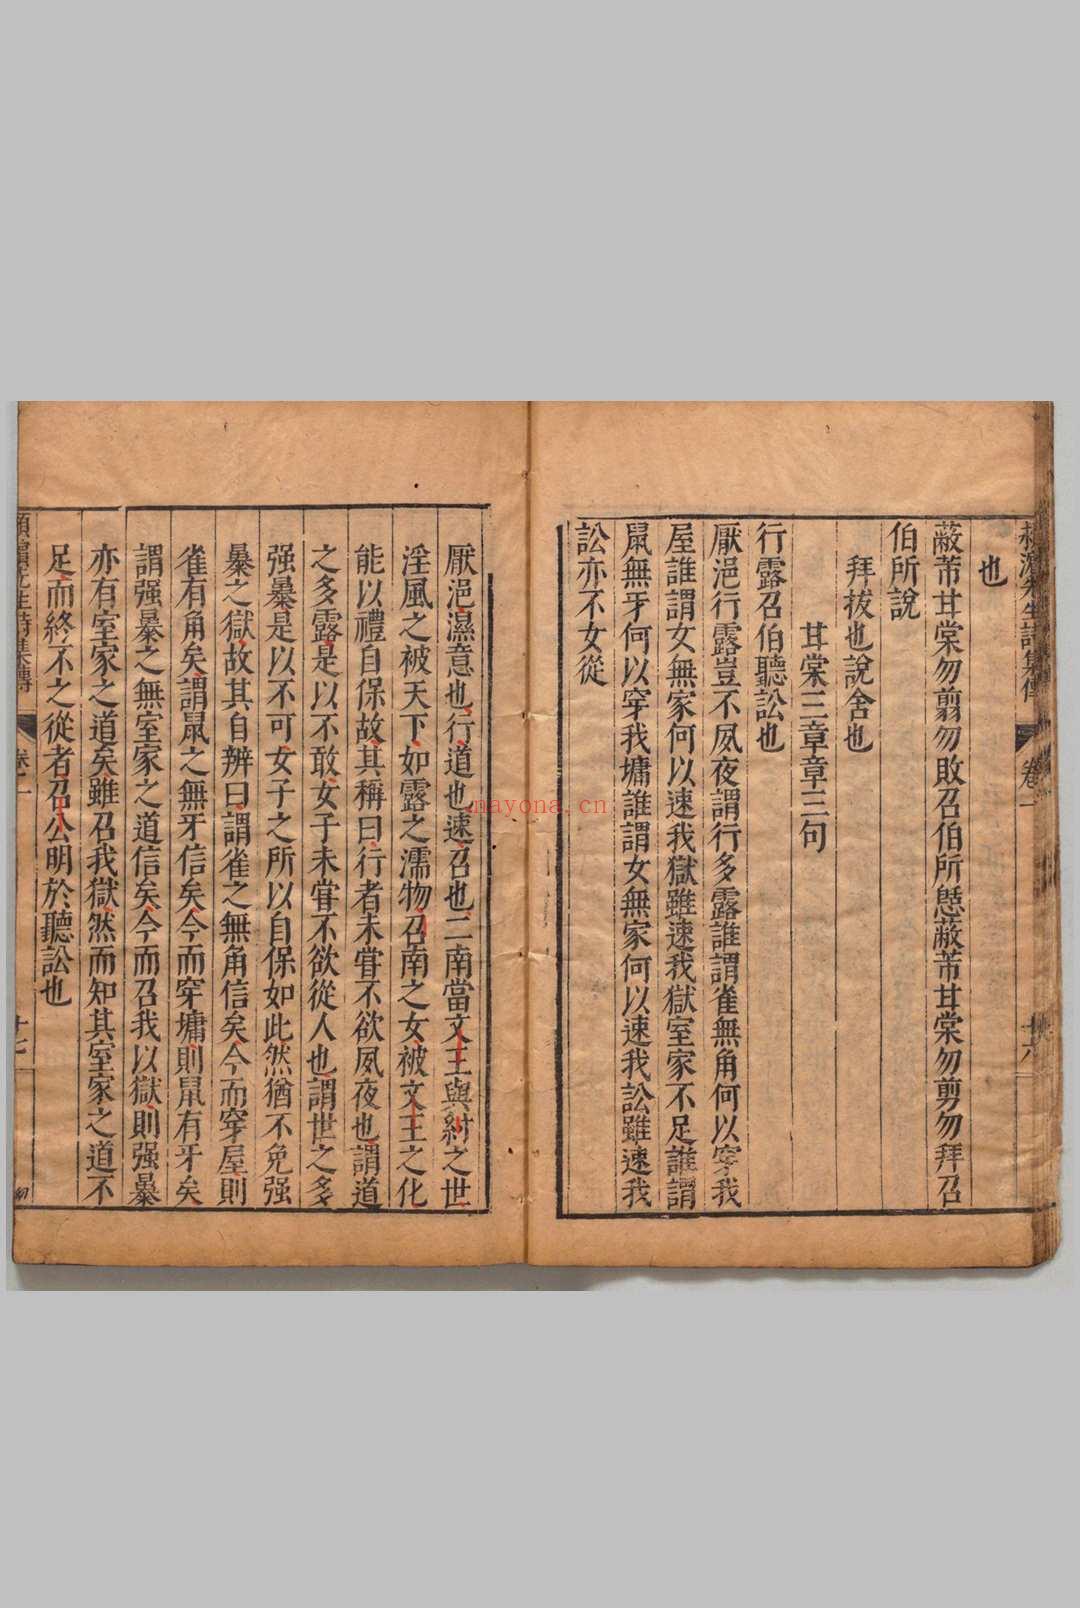 也
蔽芾甘棠勿翦勿敗召伯所憩蔽芾甘棠勿剪勿拜召
伯所說
拜拔也說舍也
甘棠三章章三句
行露召伯聽訟也
厭浥行露豈不夙夜謂行多露誰謂雀無角何以穿我
屋誰謂女無家何以速我獄雖速我獄室家不足誰謂
鼠無牙何以穿我墉誰謂女無家何以速我訟雖速我
訟亦不女從
厭浥濕意也行道也速召也二南當文王與紂之世
淫風之被天下如露之濡物召南之女被文王之化
能以禮自保故其稱曰行者未甞不欲夙夜也謂道
之多露是以不敢女子未甞不欲從人也謂世之多
强暴是以不可女子之所以自保如此然猶不免强
暴之獄故其自辨曰謂雀之無角信矣今而穿屋則
雀有角矣謂鼠之無牙信矣今而穿墉則鼠有牙矣
謂强暴之無室家之道信矣今而召我以獄則强暴
亦有室家之道矣雖召我獄然而知其室家之道不
足而終不之從者召公明於聽訟也
潁濱先生詩集傳 卷一 十七
nayona.cn